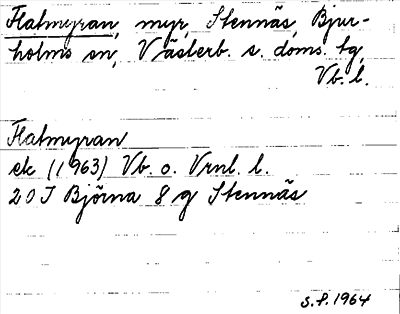 Flatmyran, myr, Stennäs, Bjur-
holms sn, Västerb. s. doms. tg,
Vb. l.
Flatmyran
ek (1963) Vb. o. Vrnl. l.
20 J Björna 8 g Stennäs
S.F. 1964